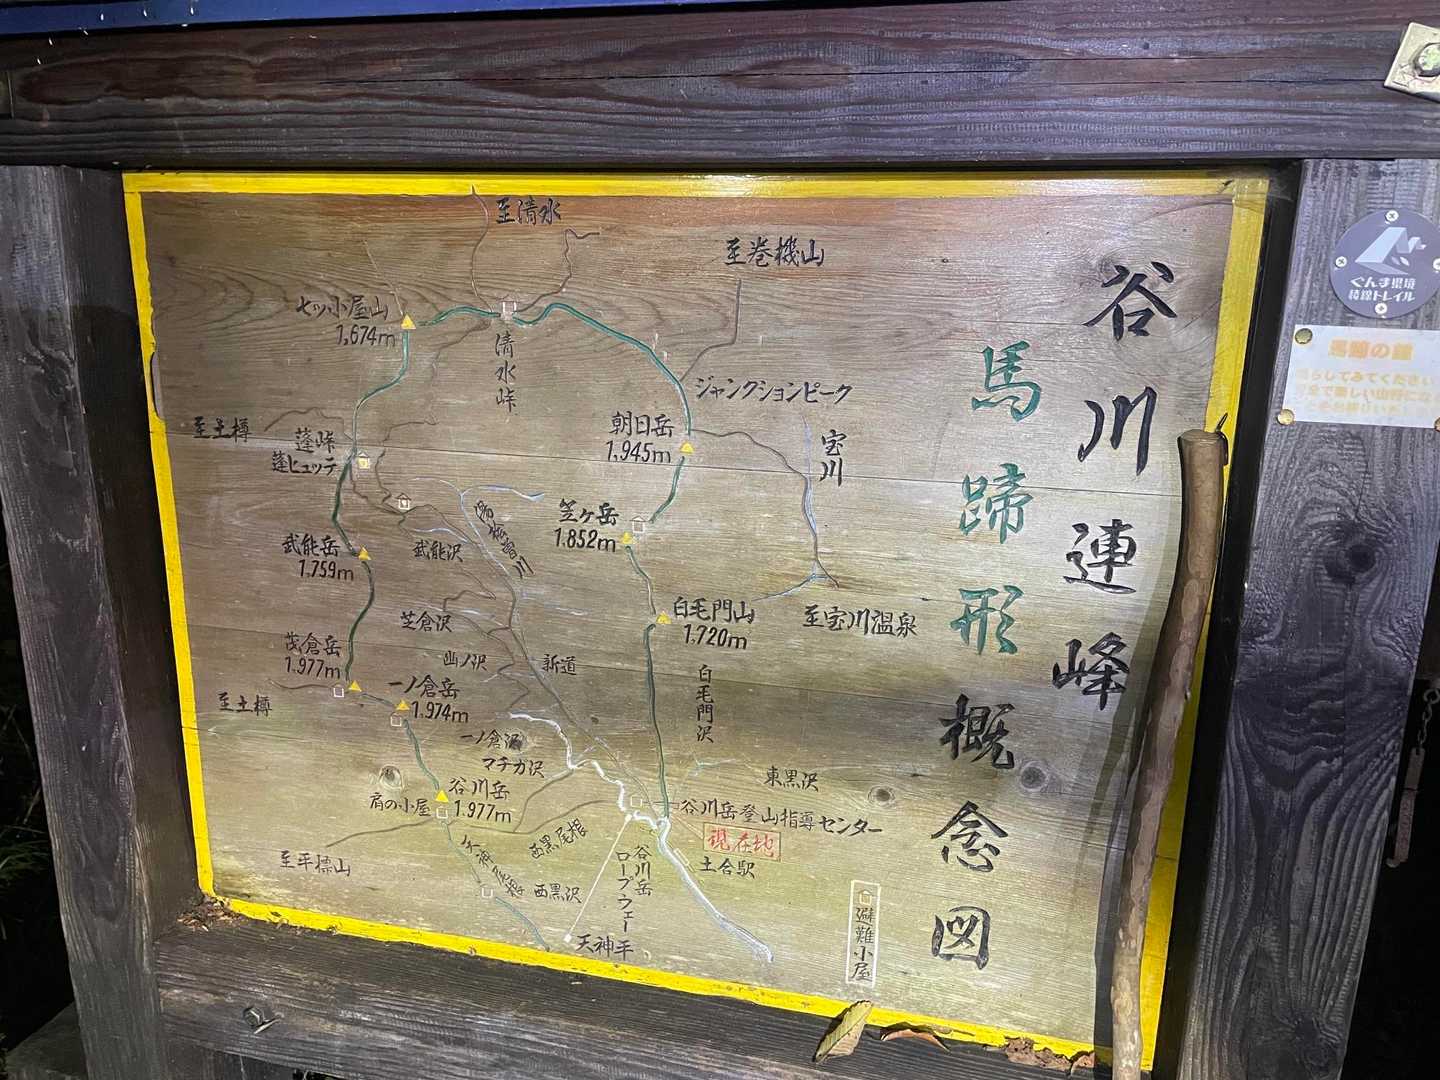 谷川連峰
馬蹄形概念図
至清水
至巻機山
七ツ小屋山
1,674m
清水峠
ジャンクションピーク
朝日岳
1,945m
宝川
至土樽
蓬峠
蓬ヒュッテ
笠ヶ岳
1.852m
湯桧曽川
武能沢
武能岳
1.759m
白毛門山
1.720m
至宝川温泉
芝倉沢
茂倉岳
1.977m
幽ノ沢
新道
白毛門沢
至土樽
一ノ倉岳
1.974m
一ノ倉沢
マチガ沢
東黒沢
谷川岳
1.977m
肩の小屋
谷川岳登山指導センター
現在地
土合駅
西黒尾根
至平標山
天神尾根
西黒沢
谷川岳
ロープウェー
天神平
避難小屋
ぐんま県境
稜線トレイル
馬蹄の鐘
らしてみてください